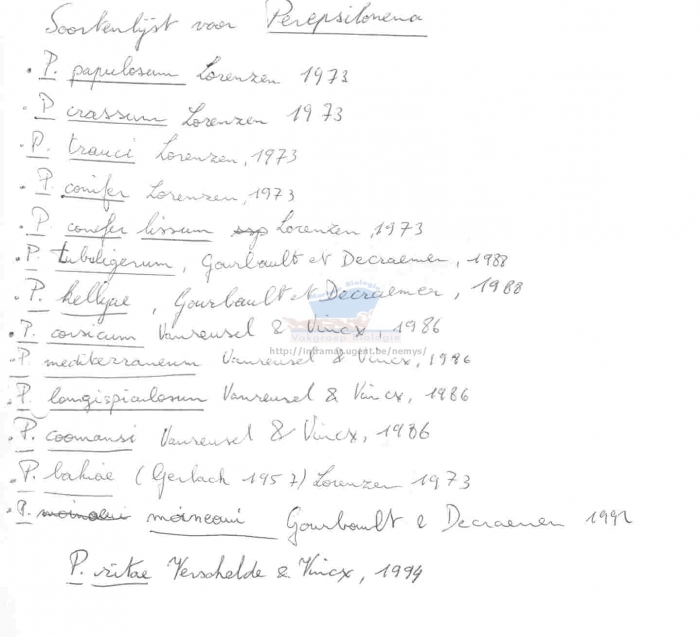 Soortenlijst voor Perepsilonema
. P. papulosum Lorenzen 1973
. P crassum Lorenzen 1973
. P. trauci Lorenzen, 1973
. P. conifer Lorenzen, 1973
. P. conifer lissum ssp Lorenzen, 1973
. P. tubuligerum, Gourbault et Decraemer, 1988
. P. kellyae, Gourbault et Decraemer, 1988
. P. corsicum Vanreusel & Vincx, 1986
Vakgroep Biologie
http://intramar.ugent.be/nemys/
. P mediterraneum Vanreusel & Vincx, 1986
. P. longispiculosum Vanreusel & Vincx, 1986
. P. coomansi Vanreusel & Vincx, 1986
. P. bahiae (Gerlach 1957) Lorenzen 1973
. P. moineaui Gourbault & Decraemer 1992
P. ritae Verschelde & Vincx, 1994